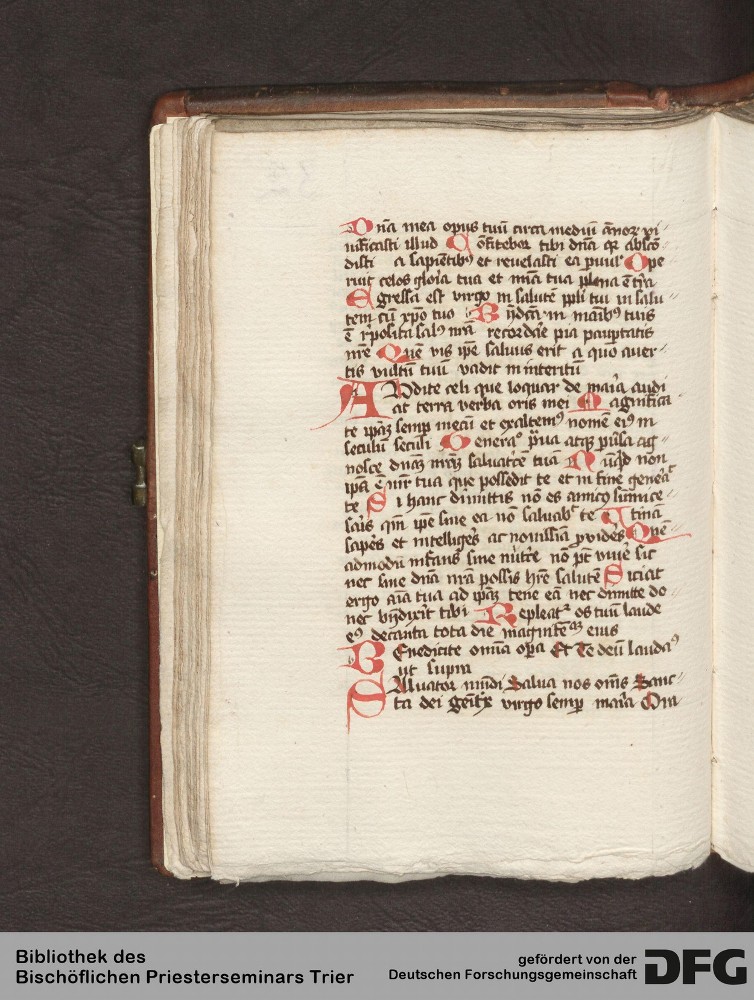 Dn̄a mea opus tuū circa mediū ānoꝝ vi-
uificasti illud Cōfitebor tibi dn̄a qꝛ abscō
disti a sapientibꝰ et reuelasti ea ꝑuul' Ope
ruit celos gloīa tua et mīa tua plena ē t'ra
Egressa est virgo in salutē ppli tui in salu
tem cū xp̄o tuo
ē recordāe pia pauꝑtatis
nr̄e Quē vis ip̄e saluus erit a quo auer-
tis vultū tuū vadit in interitū
AUdite celi que loquar de maīa audi
at terra verba oris mei Magnifica
te ip̄aꝫ semꝑ mecū et exaltemꝰ nomē eiꝰ in
seculū seculi Generaꝰ ꝑ̄ua atqꝫ
nosce dn̄aꝫ nr̄aꝫ saluat'cē tuā Nūqd nōn
ip̄a ē mr̄ tua que possedit te et in fine gen'a
te Si hanc dimittis nō es amicꝰ
qm̄ ip̄e sine ea nō saluabᶜ te Utinā
sapēs et intelligēs ac nouissīa ꝓvidēs Quē
admodū infans sine nut'ce nō pt̄ viūe sic
nec sine dn̄a nr̄a possis hr̄e salutē Siciat
ergo aīa tua ad ip̄aꝫ tene eā nec dimitte do
nec bn̄dixit tibi Repleatᷣ os tuū laude
eꝰ decanta tota die magnifē eius
Benedicite omīa oꝑa Et Te deū laudaꝰ
ut supra
SAluator mūdi Salua nos om̄s Sanc-
ta dei genit'x virgo semꝑ maīa Ora
Bibliothek des
Bischöflichen Priesterseminars Trier
gefördert von der
Deutschen Forschungsgemeinschaft
DFG